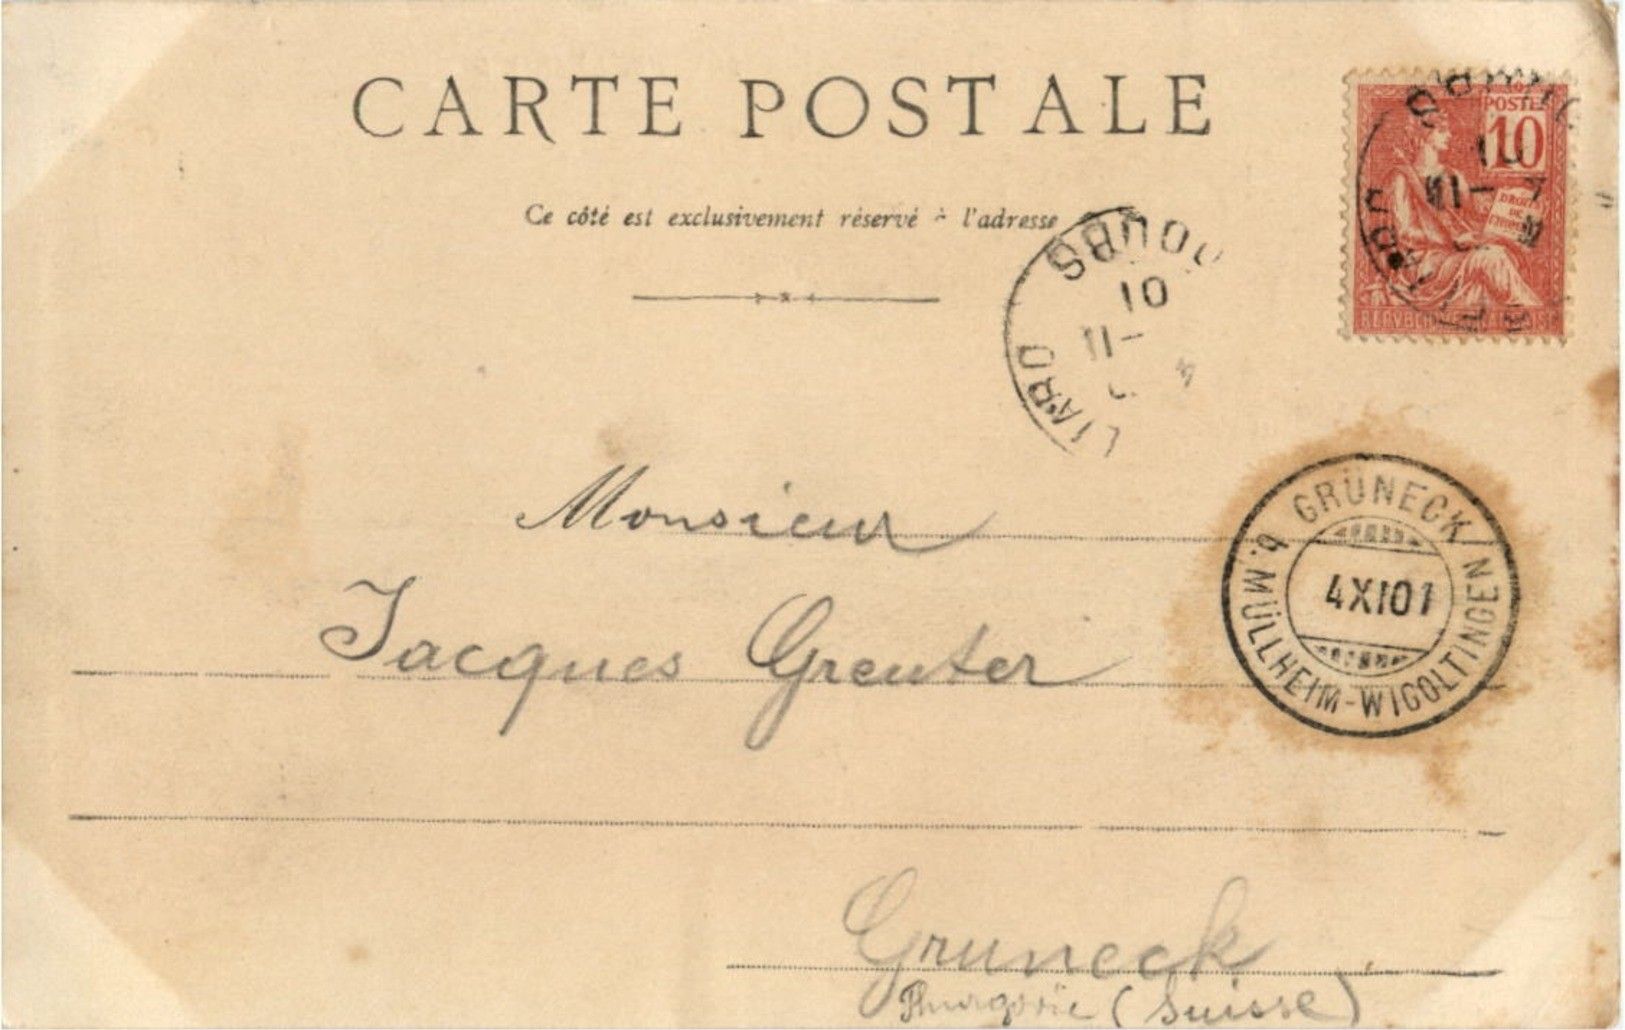 CARTE POSTALE
Ce côté est exclusivement réservé à l'adresse
10
POSTES
10
DROITS
DE
L'HOMME
REPVBLIQVE FRANÇAISE
DOUBS
01
11-
DOUBS
01
11-
4
GRÜNECK
b. MÜLLHEIM-WIGOLTINGEN
4 XI 01
Monsieur
Jacques Greuter
Gruneck
Thurgovie (Suisse)